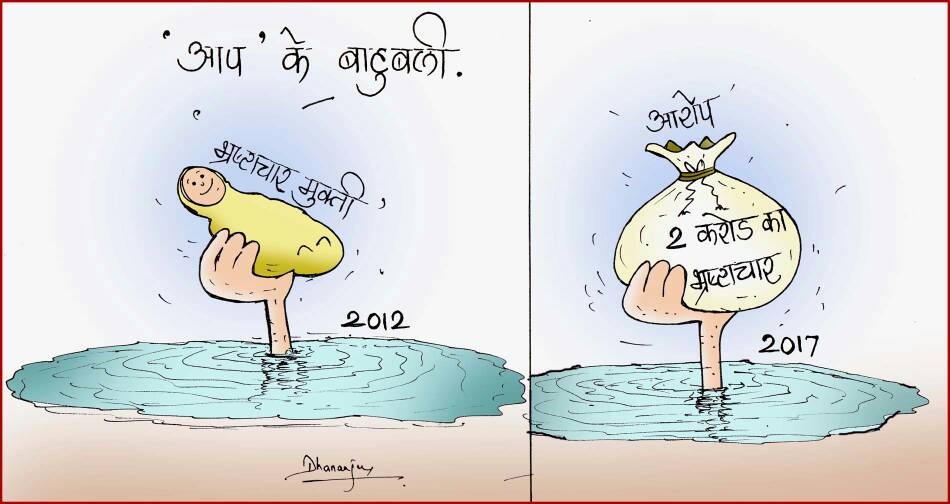 'आप' के बाहुबली.
भ्रष्टाचार मुक्ती
2012
Dhananjay
आरोप
2 करोड का
भ्रष्टाचार
2017